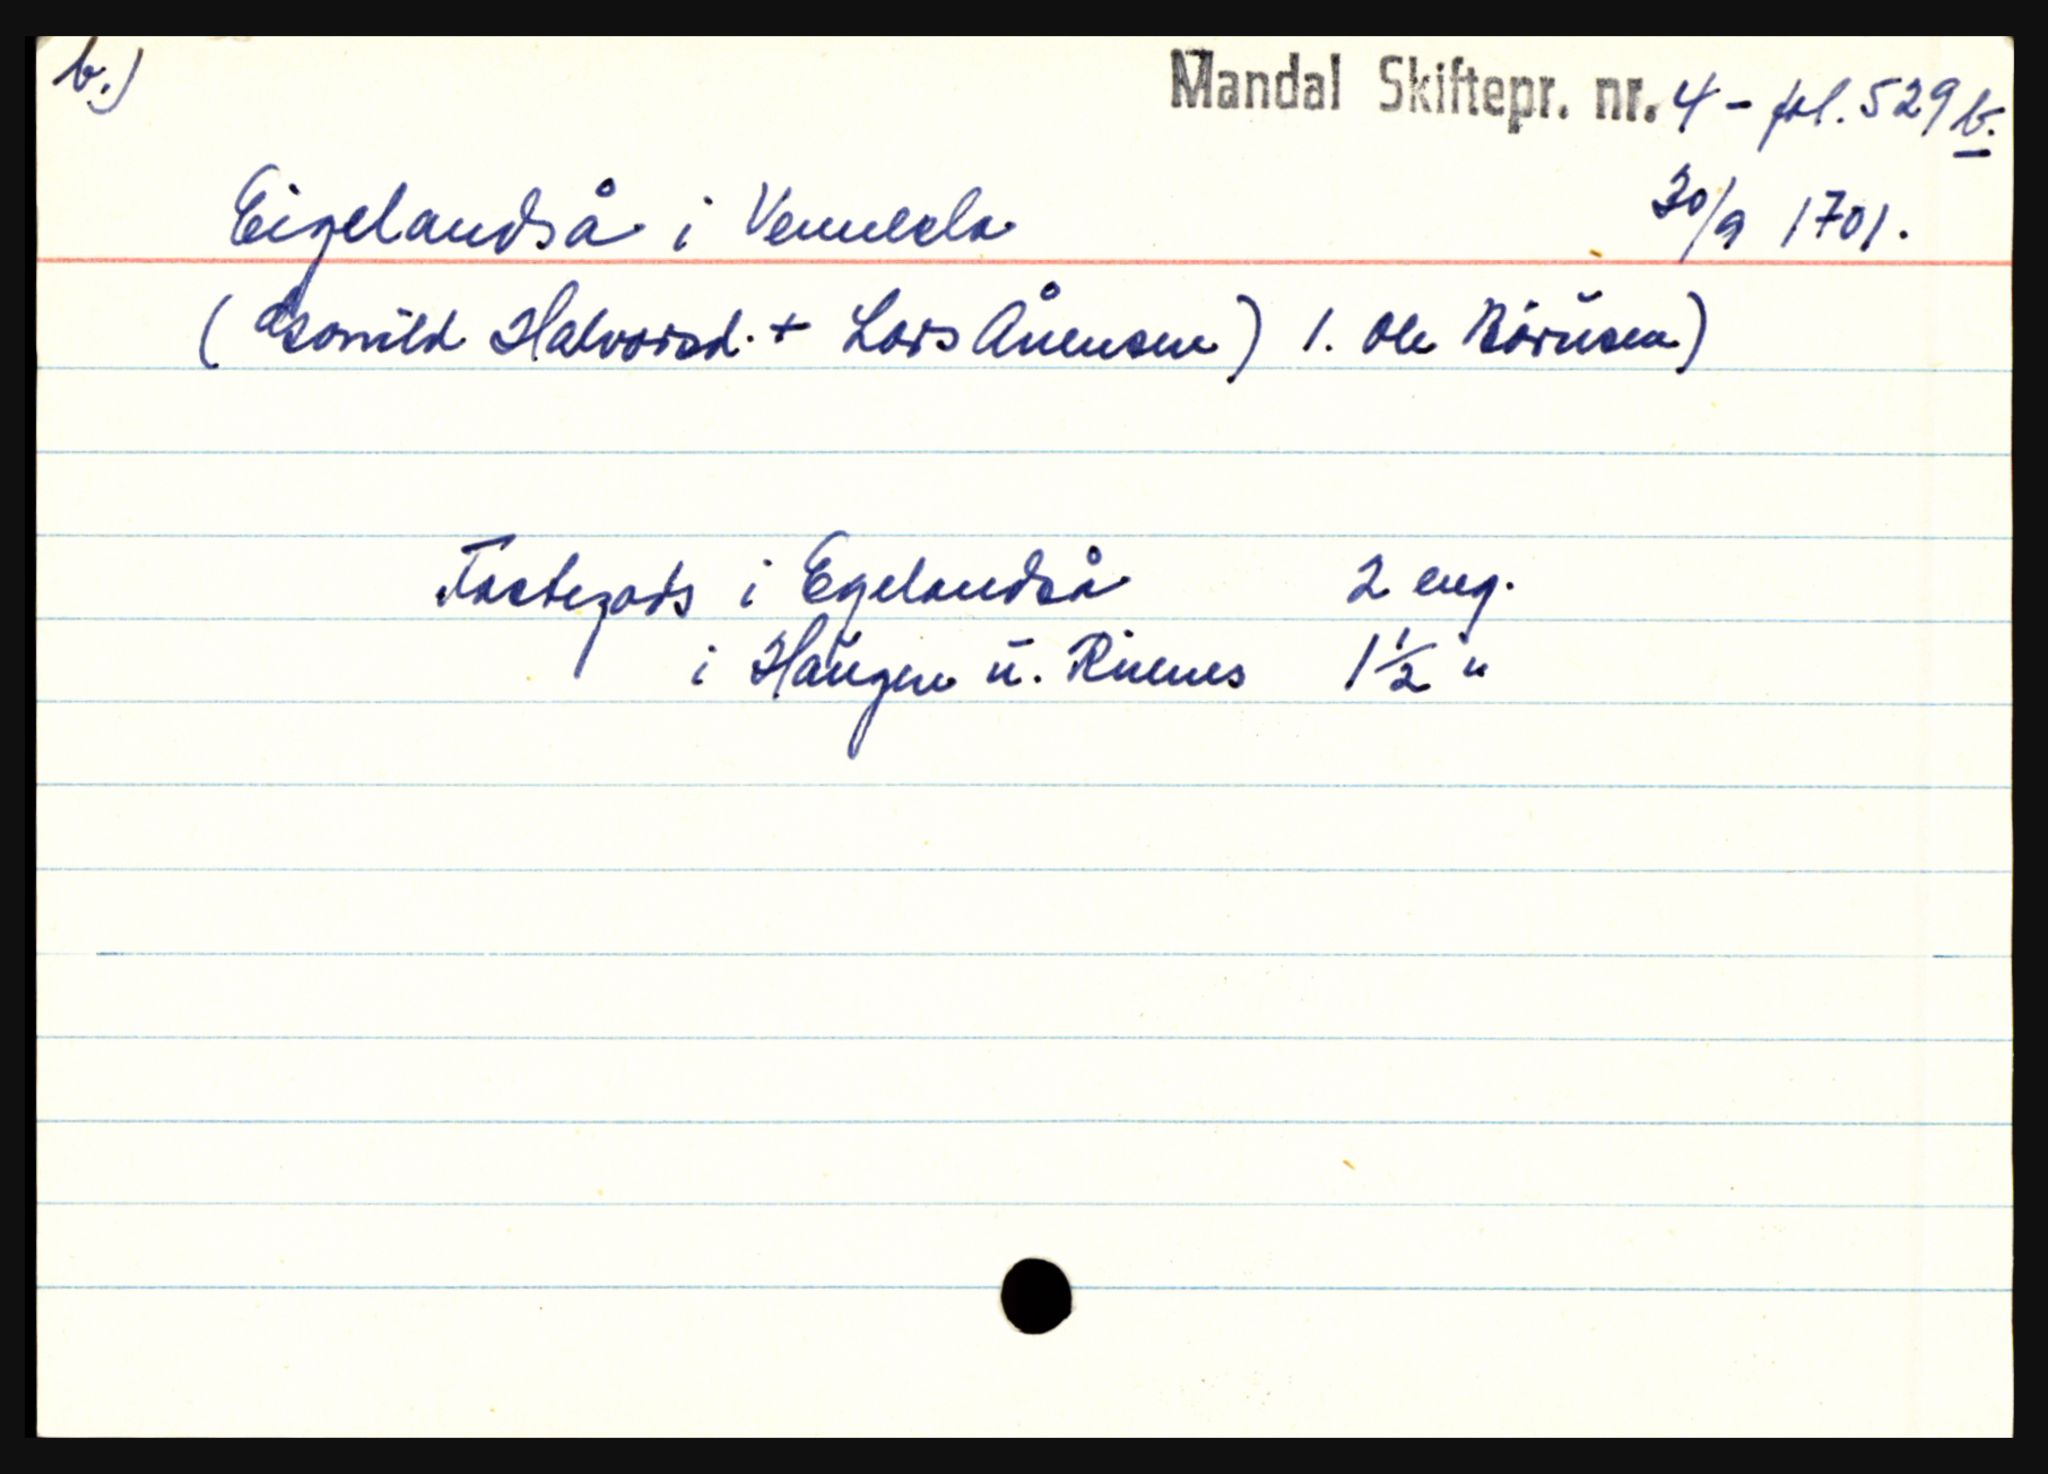 b.)
Mandal Skiftepr. nr. 4 - fol. 529 b.
Eigelandså i Vennesla 30/9 1701.
(Asonild Halvorsd. + Lars Ånensen) 1. Ole Börüsen)
Fastegods i Egelandså 2 eng.
i Haugen ü. Rienes 1 1/2 "